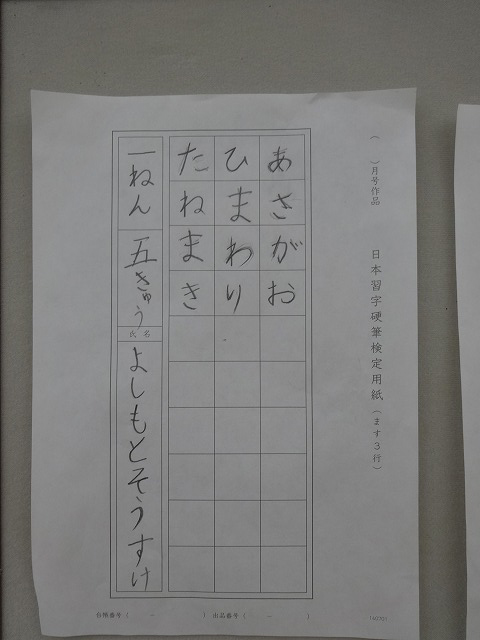 ( )月号作品
日本習字硬筆検定用紙(ます3行)
あさがお
ひまわり
たねまき
一ねん 五きゅう
氏名
よしもとそうすけ
台帳番号( - ) 出品番号( - )